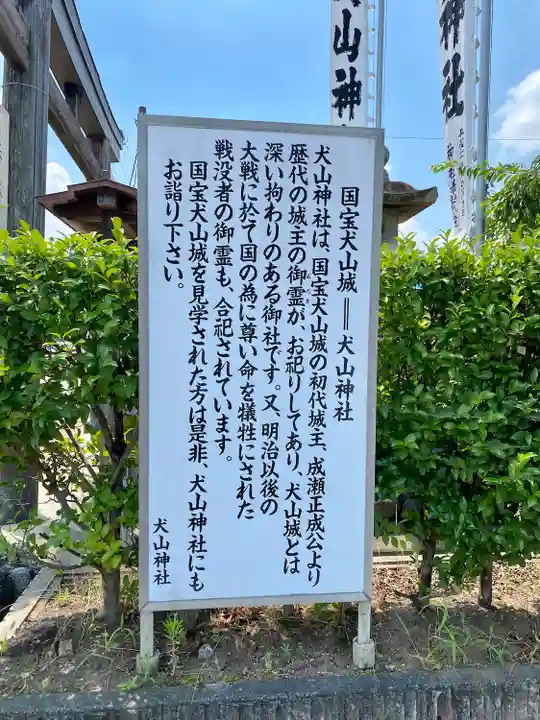 国宝犬山城＝犬山神社
犬山神社は、国宝犬山城の初代城主、成瀬正成公より
歴代の城主の御霊が、お祀りしてあり、犬山城とは
深い拘わりのある御社です。又、明治以後の
大戦に於て国の為に尊い命を犠牲にされた
戦没者の御霊も、合祀されています。
国宝犬山城を見学された方は是非、犬山神社にも
お詣り下さい。
犬山神社
犬山神
神社